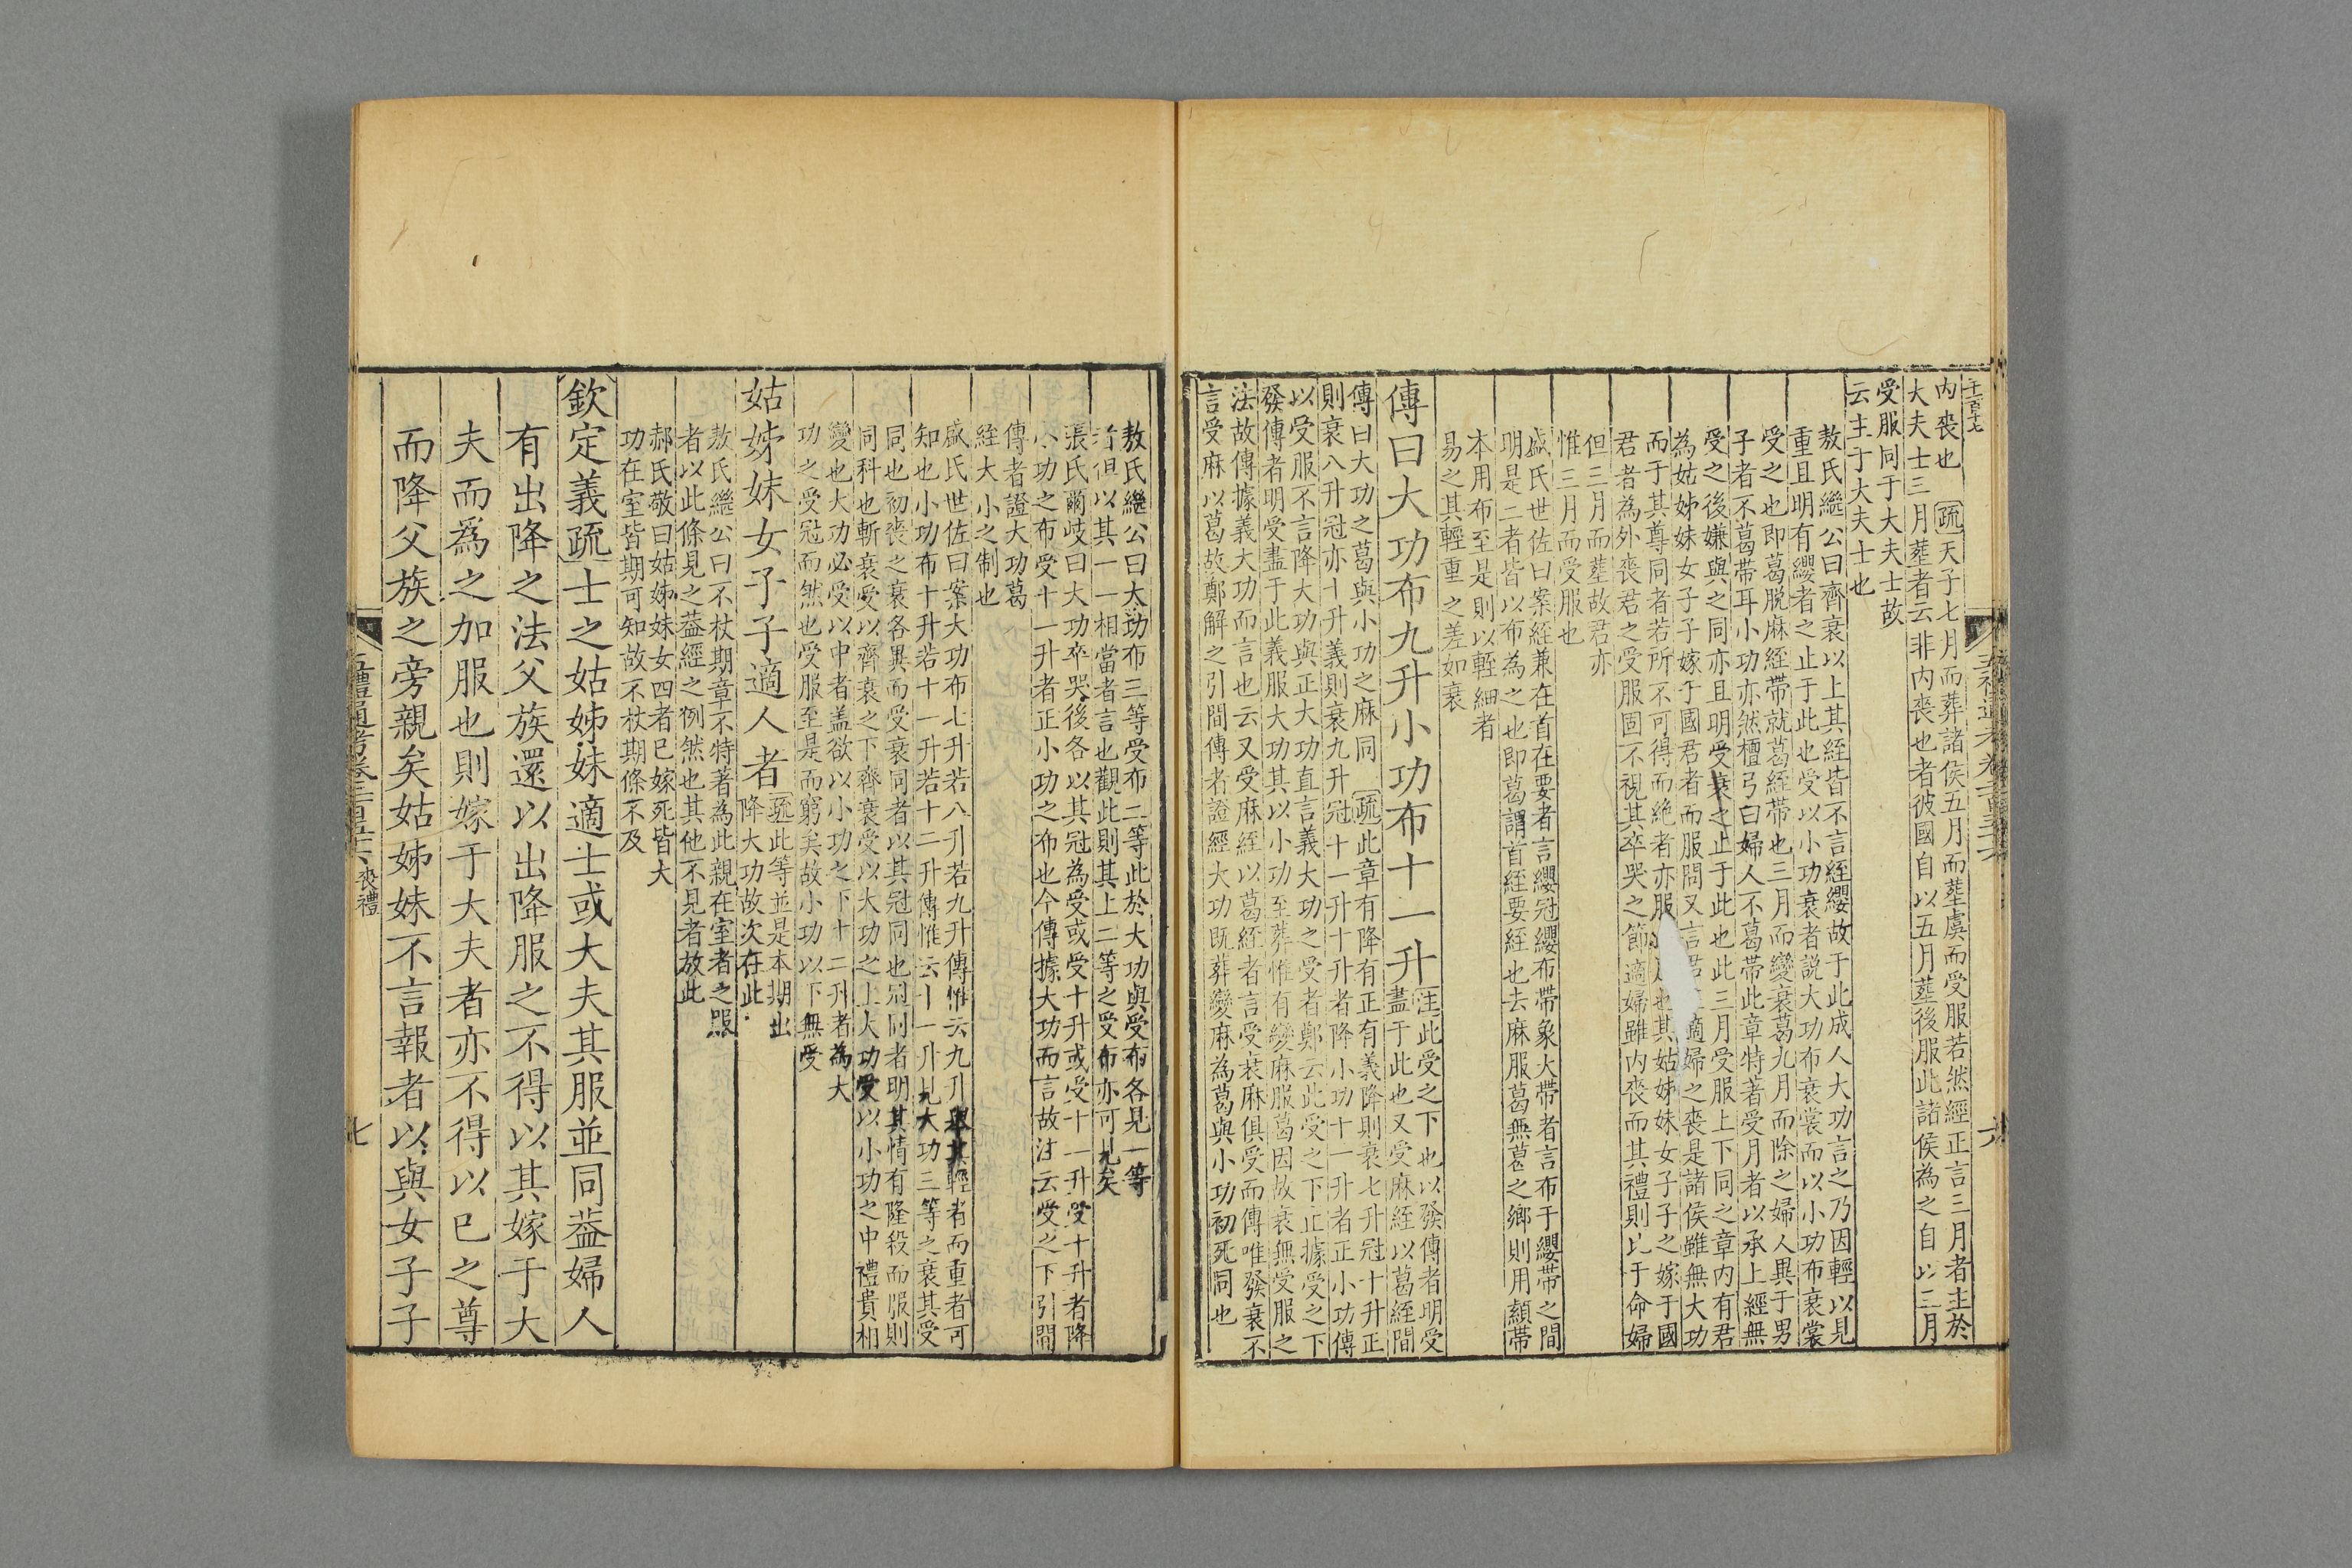 內喪也疏天子七月而葬諸侯五月而塟虞而受服若然經正言三月者主於
大夫士三月塟者云非內喪也者彼國自以五月塟後服此諸侯為之自以三月
受服同于大夫士故
云主于大夫士也
敖氏繼公曰齊衰以上其絰皆不言絰纓故于此成人大功言之乃因輕以見
重且明有纓者之止于此也受以小功衰者説大功布衰裳而以小功布衰裳
受之也即葛脫麻絰帶就葛絰帶也三月而變衰葛九月而除之婦人異于男
子者不葛帶耳小功亦然檀弓曰婦人不葛帶此章特著受月者以承上經無
受之後嫌與之同亦且明受衰之止于此也此三月受服上下同之章內有君
為姑姊妹女子子嫁于國君者而服問又言君
適婦之喪是諸侯雖無大功
而于其尊同者若所不可得而絶者亦服
也其姑姊妹女子子之嫁于國
君者為外喪君之受服固不視其卒哭之節適婦雖內喪而其禮則比于命婦
但三月而塟故君亦
惟三月而受服也
盛氏世佐曰案絰兼在首在要者言纓冠纓布帶象大帶者言布于纓帶之間
明是二者皆以布為之也即葛謂首絰要絰也去麻服葛無葛之鄉則用顈帶
本用布至是則以輕細者
易之其輕重之差如衰
傳曰大功布九升小功布十一升
注此受之下也以發傳者明受
盡于此也又受麻絰以葛絰間
傳曰大功之葛與小功之麻同疏此章有降有正有義降則衰七升冠十升正
則衰八升冠亦十升義則衰九升冠十一升十升者降小功十一升者正小功傳
以受服不言降大功與正大功直言義大功之受者鄭云此受之下正據受之下
發傳者明受盡于此義服大功其以小功至葬惟有變麻服葛因故衰無受服之
法故傳據義大功而言也云又受麻絰以葛絰者言受衰麻俱受而傳唯發衰不
言受麻以葛故鄭解之引間傳者證經大功既葬變麻為葛與小功初死同也
敖氏繼公曰大功布三等受布二等此於大功與受布各見一等
者但以其一一相當者言也觀此則其上二等之受布亦可見矣
張氏爾岐曰大功卒哭後各以其冠為受或受十升或受十一升受十升者降
小功之布受十一升者正小功之布也今傳據大功而言故注云受之下引間
傳者證大功葛
絰大小之制也
盛氏世佐曰案大功布七升若八升若九升傳惟云九升舉其輕者而重者可
知也小功布十升若十一升若十二升傳惟云十一升見大功三等之衰其受
同也初喪之衰各異而受衰同者以其冠同也冠同者明其情有隆殺而服則
同科也斬衰受以齊衰之下齊衰受以大功之上大功受以小功之中禮貴相
變也大功必受以中者盖欲以小功之下十二升者為大
功之受冠而然也受服至是而窮矣故小功以下無受
姑姊妹女子子適人者
疏此等並是本期出
降大功故次在此
敖氏繼公曰不杖期章不特著為此親在室者之服
者以此條見之葢經之例然也其他不見者放此
郝氏敬曰姑姊妹女四者已嫁死皆大
功在室皆期可知故不杖期條不及
欽定義疏士之姑姊妹適士或大夫其服並同葢婦人
有出降之法父族還以出降服之不得以其嫁于大
夫而為之加服也則嫁于大夫者亦不得以已之尊
而降父族之旁親矣姑姊妹不言報者以與女子子
五禮通考卷二百五十六 喪禮
七